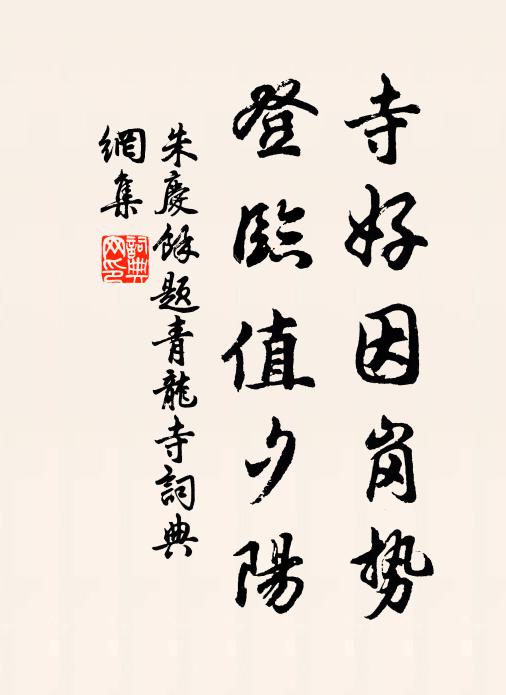 寺好因岗势
登臨值夕陽
朱慶餘题青龍寺詞典
網集
詞典網印